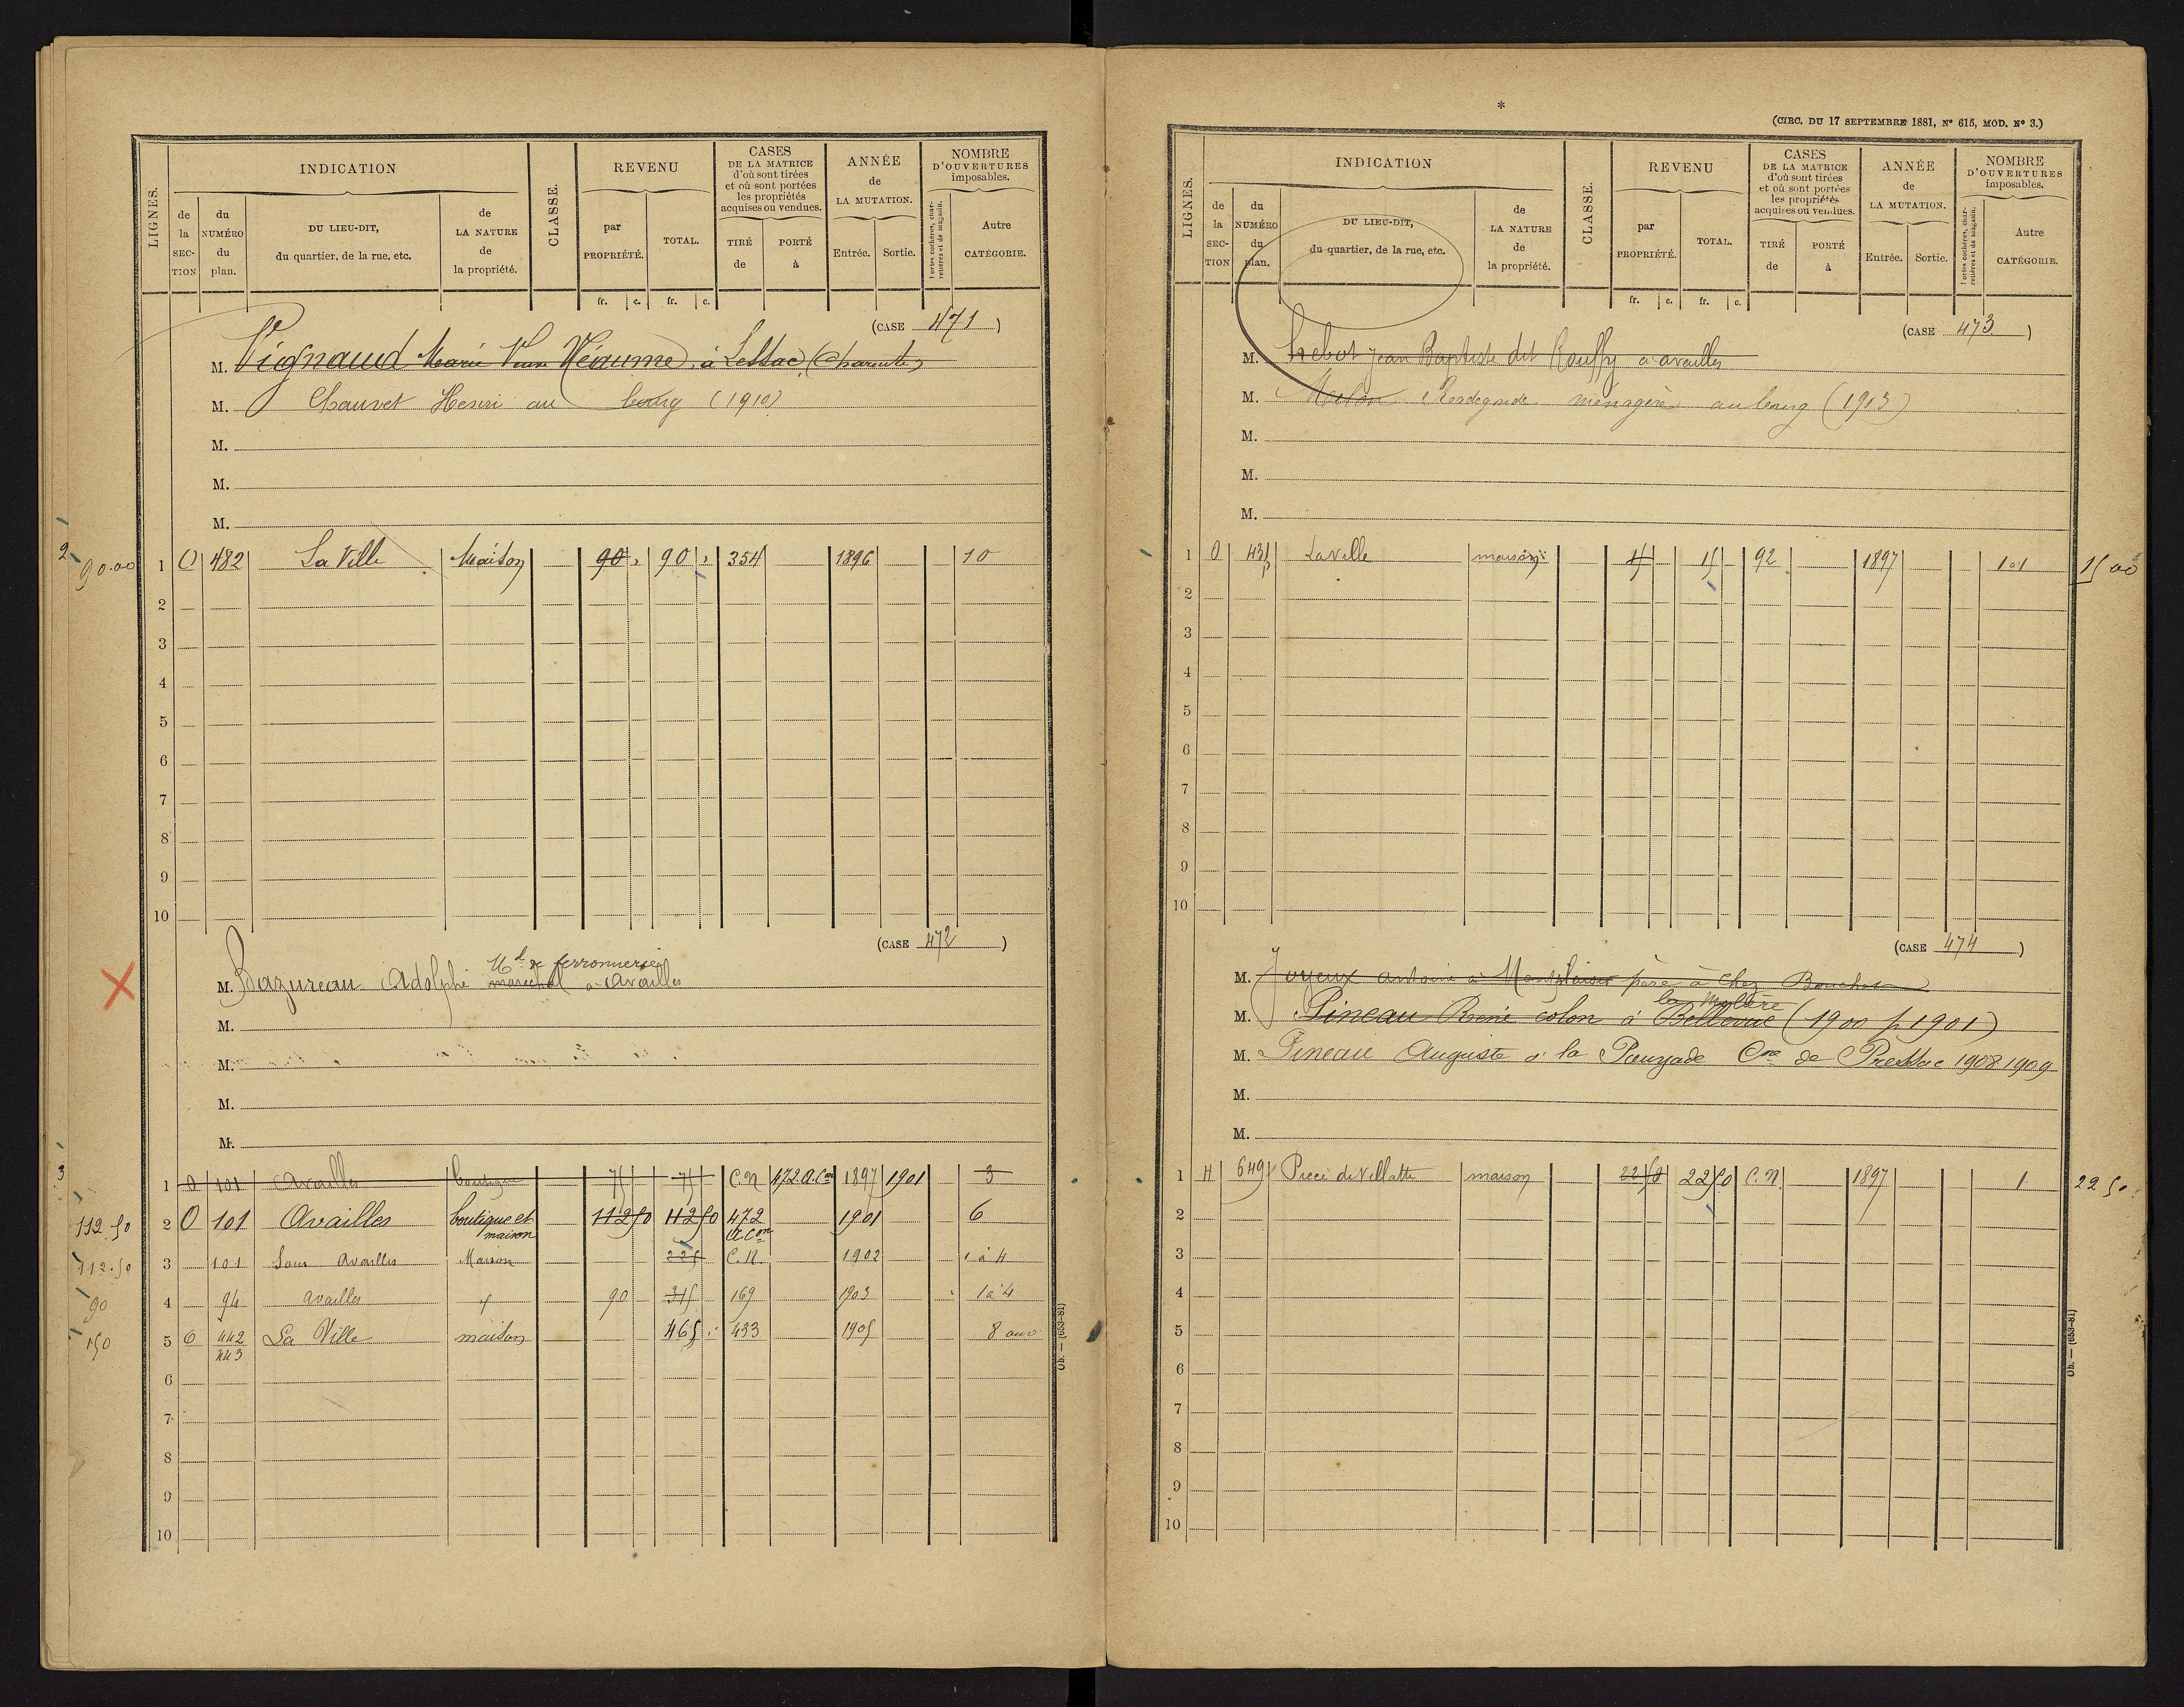 LIGNES.
INDICATION
de la SECTION
du NUMÉRO du plan.
DU LIEU-DIT, du quartier, de la rue, etc.
de LA NATURE de la propriété.
CLASSE.
REVENU
par PROPRIÉTÉ.
TOTAL.
CASES DE LA MATRICE d'où sont tirées et où sont portées les propriétés acquises ou vendues.
TIRÉ de
PORTÉ à
ANNÉE de LA MUTATION.
Entrée.
Sortie.
NOMBRE D'OUVERTURES imposables.
Portes cochères, charretières et de magasin.
Autre CATÉGORIE.
fr. c. fr. c.
(CASE 471)
M. Vignaud Marie Veuve Réaume, à Lessac (Charente)
M. Chauvet Henri au bourg (1910)
M.
M.
M.
2 90.00 1 O 482 La Ville Maison 90 " 90 " 354 1896 10
2
3
4
5
6
7
8
9
10
(CASE 472)
Md de ferronnerie
M. Bazureau Adolphe marechal à Availles
M.
M.
M.
M.
3
1 O 101 Availles boutique 75 75 C.N 472.a.Con 1897 1901 3
112.50 2 O 101 Availles boutique et maison 112 50 112 50 472 a Con 1901 6
112.50 3 101 Sous Availles Maison 225 C.N. 1902 1 à 4
90 4 94 availles 90 315 169 1903 1 à 4
150 5 O 442 443 La Ville maison 465 433 1905 8
6
7
8
9
10
Ob. — (653-81)
*
(CIRC. DU 17 SEPTEMBRE 1881, No 615, MOD. No 3.)
LIGNES.
INDICATION
de la SECTION
du NUMÉRO du plan.
DU LIEU-DIT, du quartier, de la rue, etc.
de LA NATURE de la propriété.
CLASSE.
REVENU
par PROPRIÉTÉ.
TOTAL.
CASES DE LA MATRICE d'où sont tirées et où sont portées les propriétés acquises ou vendues.
TIRÉ de
PORTÉ à
ANNÉE de LA MUTATION.
Entrée.
Sortie.
NOMBRE D'OUVERTURES imposables.
Portes cochères, charretières et de magasin.
Autre CATÉGORIE.
fr. c. fr. c.
(CASE 473)
M. Jean Baptiste dit Rouffy à availles
M. Radegonde ménagère au bourg (1913)
M.
M.
M.
1 O 431 La ville maison 15 15 92 1897 1 15 00
2
3
4
5
6
7
8
9
10
(CASE 474)
M. Joyeux antoine à père à Chez Bouchet
M. Pineau René colon à Bellevue (1900 p 1901)
M. Pineau Auguste à la Pouyade Cne de Pressac 1908 1909
M.
M.
1 H 649 de Villatte maison 22 50 22 50 C.N. 1897 1 22 50
2
3
4
5
6
7
8
9
10
Ob. — (653-81)